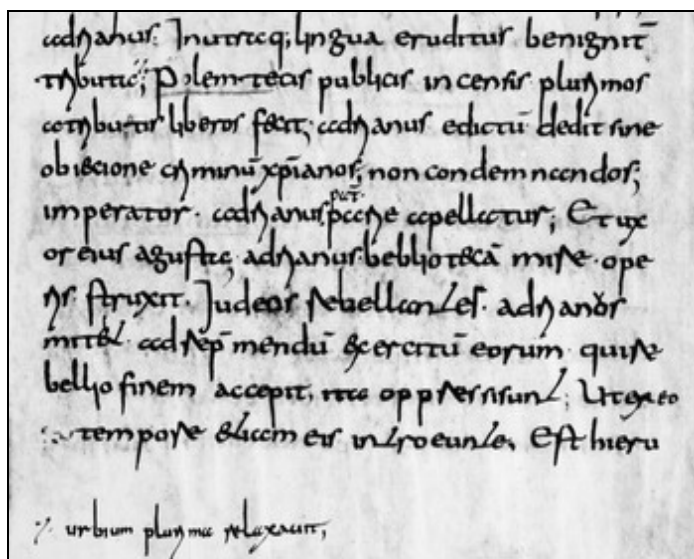 adrianus. Inutraq; lingua eruditus benignit̄
tributic; Polem tecis publicis incensis plurimos
cotributis liberos fecit; adrianus edictū dedit sine
obiecione criminū xp̄ianos; non condemnandos;
pat̄.
imperator. adrianus patrie apellatus; Et ux
or eius agustę; adrianus. bebliotecā mire. ope
ris. struxit. Iudeos rebellantes. adrianus
mittet ad rep̄mendū exercitū eorum. qui re
bellio finem accepit, ita oppressi sunt; Ut ex eo
tempore etiam eis introeunte, Est hieru
urbium plurima relaxauit,